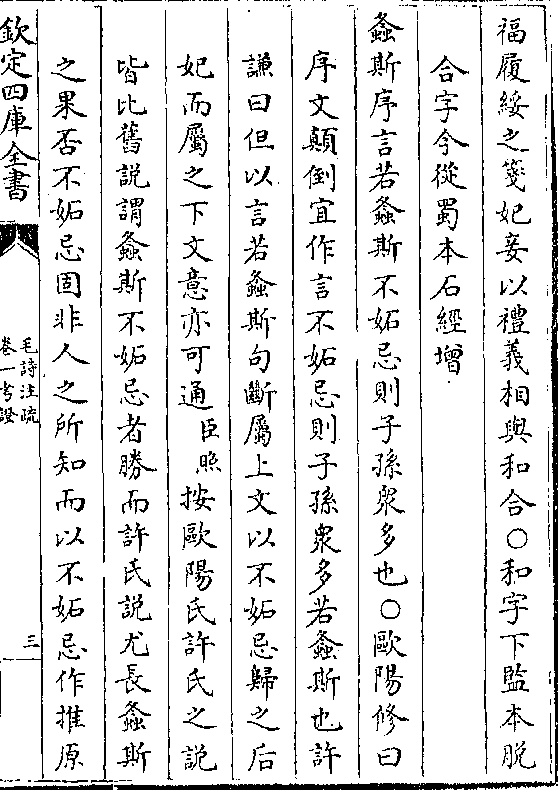 福履綏之箋妃妾以禮義相與和合○和字下監本脱
合字今從蜀本石經增
螽斯序言若螽斯不妬忌則子孫衆多也○歐陽修曰
序文顛倒宜作言不妬忌則子孫衆多若螽斯也許
謙曰但以言若螽斯句斷屬上文以不妬忌歸之后
妃而屬之下文意亦可通臣照按歐陽氏許氏之説
皆比舊説謂螽斯不妬忌者勝而許氏説尤長螽斯
之果否不妬忌固非人之所知而以不妬忌作推原
欽定四庫全書
毛詩注疏
卷一考證
三